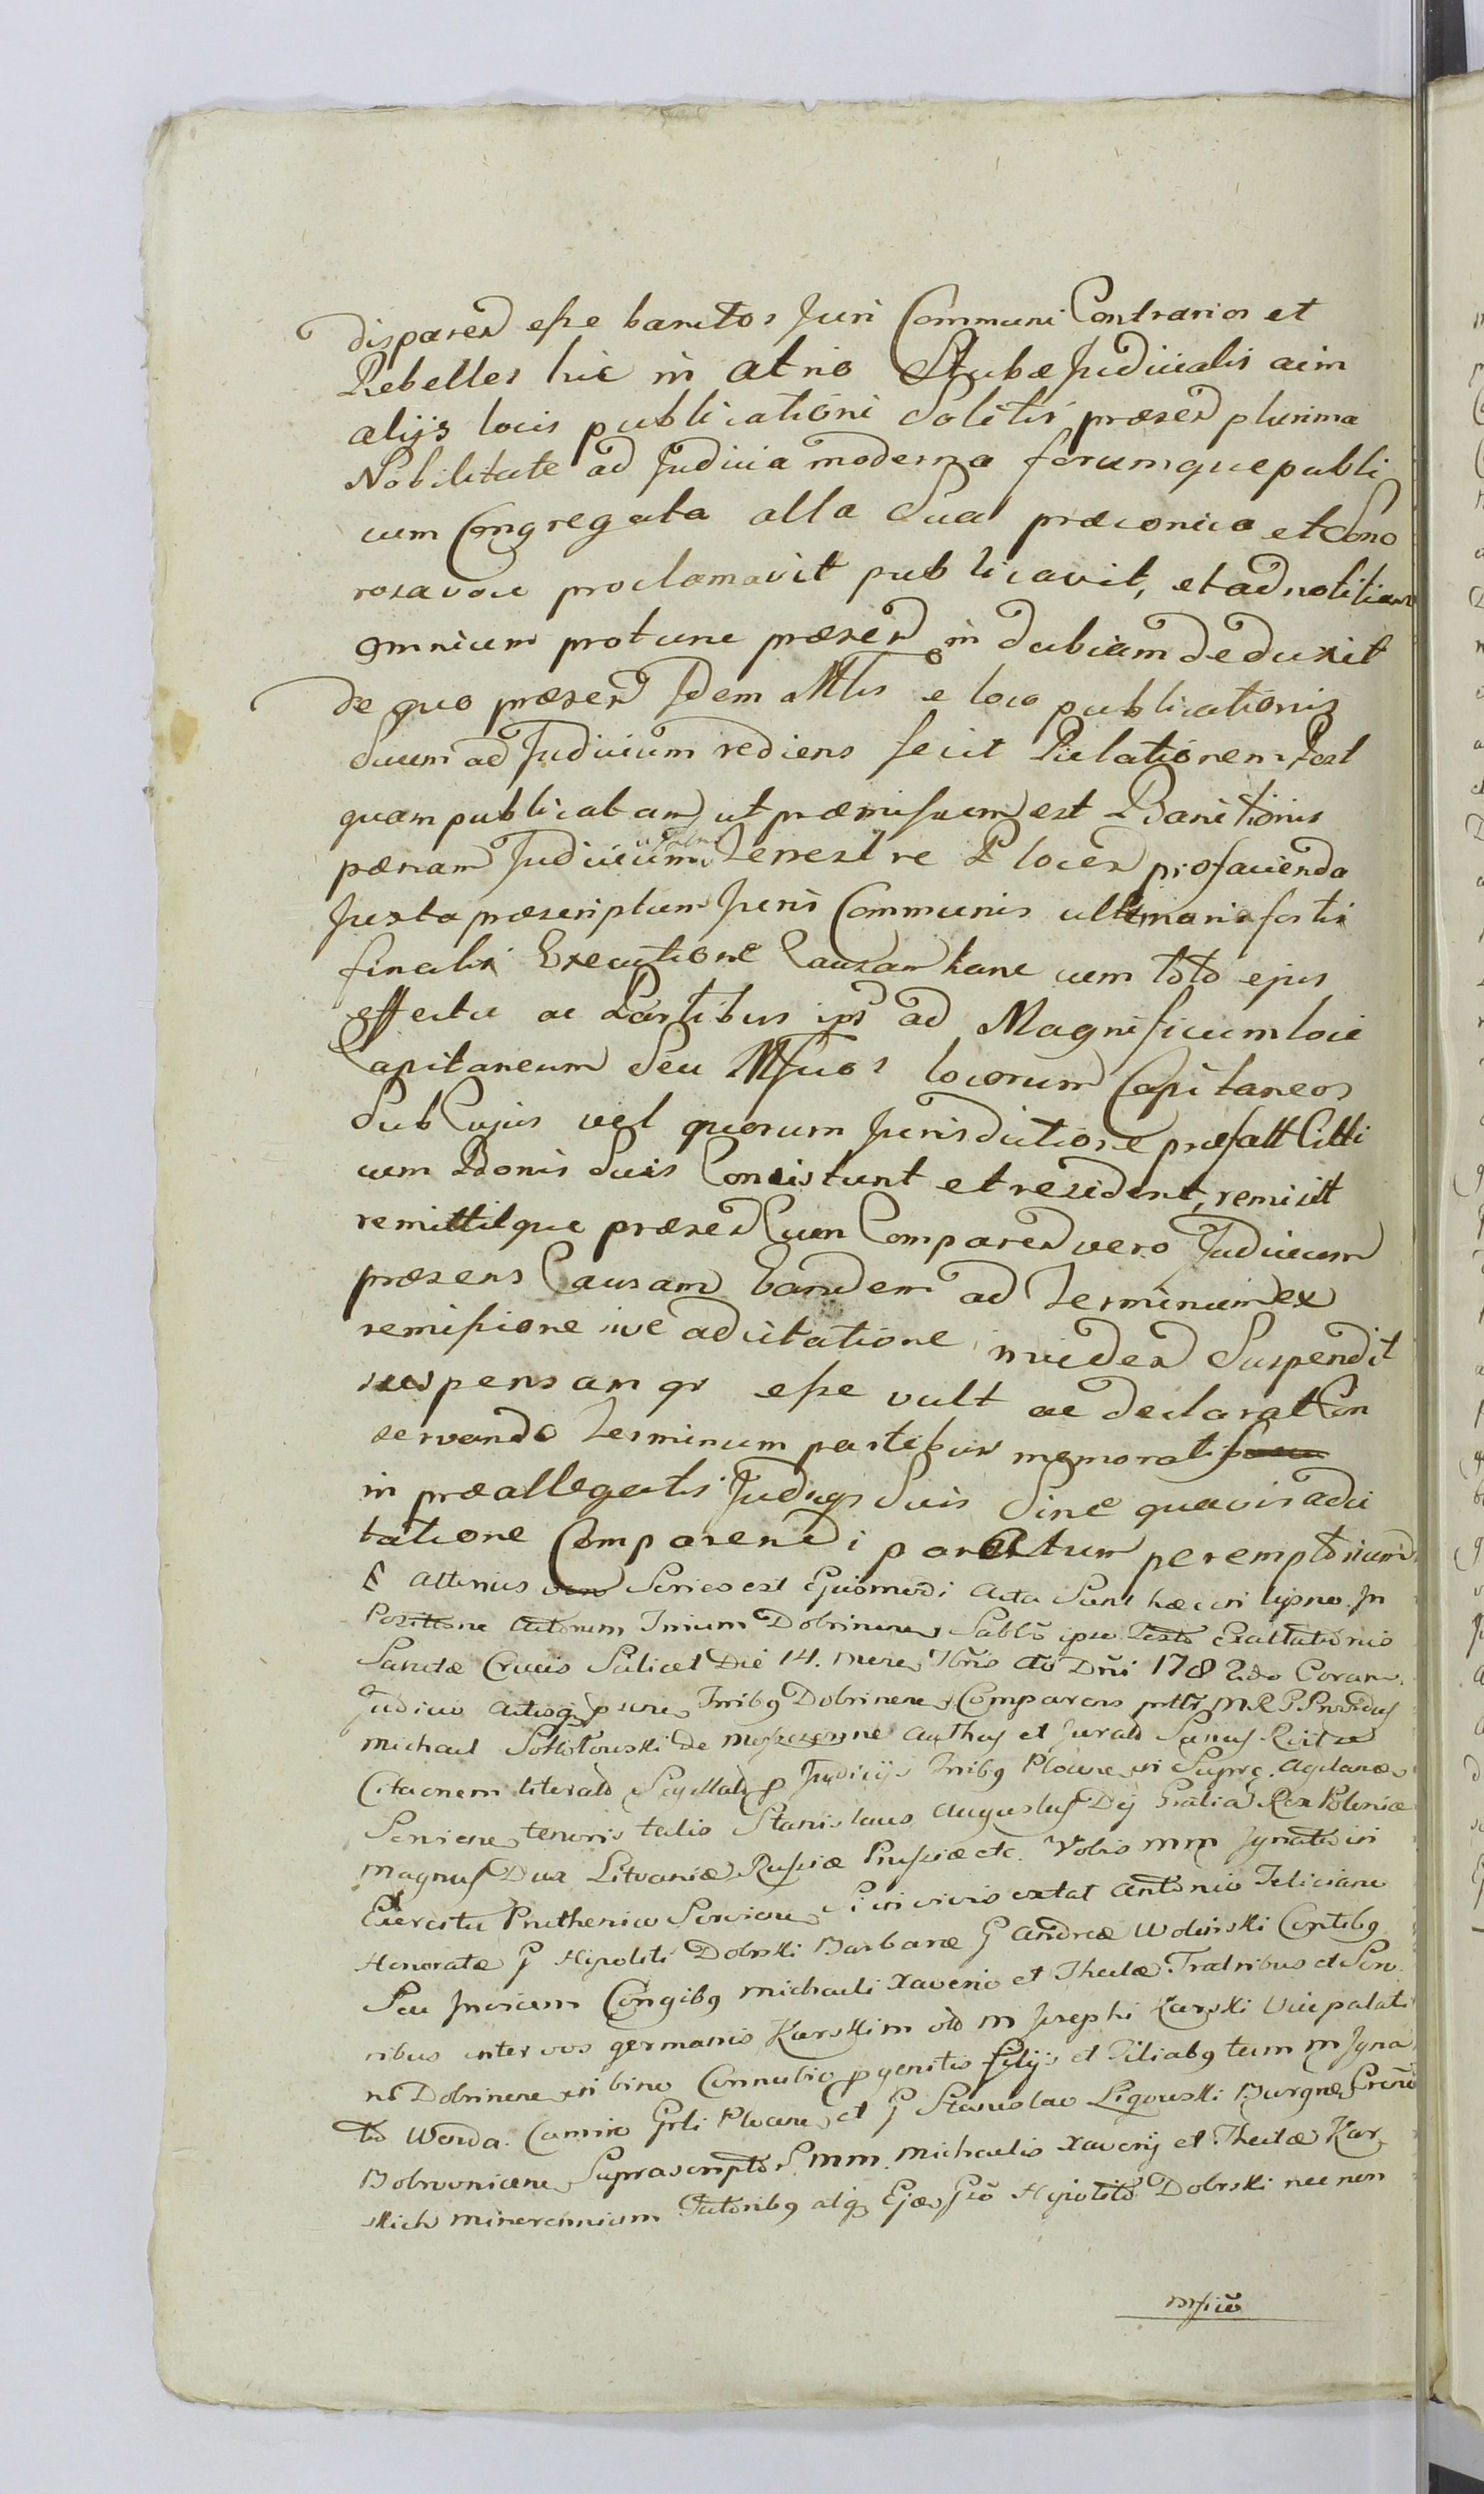 disparen esse banitos Juri Communi Contrarios et
Rebelles hic in atrio Stubæ Judicialis acin
alijs locis publicationi Solitis præsen plurima
Nobilitate ad Judicia moderna forumque publi
cum Congregata alta Sua præconica et Sono
rosa voce proclamavit publicavit, et ad notitiam
omnium protunc præsen in dubiam deduxit
de quo præsen Idem Mlis e loco publicationis
Suum ad Judicium rediens fecit Relationem Post
quam publicatam ut præmissum est Banitionis
pænam Judicium Terrestre Plocen pro facienda
Juxta præscriptum Juris Communis ultimaria fortis
finalis Executione Causam hanc cum toto ejus
effectu ac Partibus ips ad Magnificum loci
Capitaneum Seu Mficos locorum Capitaneos
Sub Cujus vel quorum Jurisdictione præfatt Citti
cum Bonis Suis Consistunt et resident, remisit
remittitque præsen Cum Comparen vero Judicium
præsens Causam Eandem ad Terminum ex
remissione sive adcitatione inciden Suspendit
suspensamqr esse vult ac declarat Con
servando Terminum partibus memoratis
in præallegatis Judiijs Suis Sine quavis adci
tatione Comparendi paratum peremptorium
E attinius Series est Ejusmodi Acta Sunt hæc in Lipno In
Positione Actorum Trium Dobrinen Sabbo ipso Festo Exaltationis
Sanctæ Crucis Scilicet Die 14. mene 7bris Ao Dni 1782do Coram
Judicio Actisq pnre Trribq Dobrinen Comparens prttr M R P Providus
Michael Sokołowski de authus et Jurato Sanus Recitæ
Citacnem literato Sigillato p Judicijs Trribq Plocen in Supre Agdanæ
Serviene tenoris talis Stanislaus Augustus Dei Gratia Rex Poloniæ
Magnus Dux Litvaniæ Russiæ Prussiæ etc. Vobis MM Ignatio in
Exercitu Pruthenico Serviene Si in vivis extat Antonio Feliciano
Honoratæ G Hipoliti Dobrski Barbaræ G Andreæ Woliński Contibq
Seu Ipsorum Congibq Michaeli Xaverio et Theclæ Fratribus et Soro
ribus inter vos germanis Karskim oto M Josephi Karski Vicepalati
ni Dobrinene in bino Connubio pgenitis filijs et Filiabq tum M Igna
tio Werda Camrio Grli Plocen et G Stanislao Ligowski Burgræ Gresno
Bobrovnicene Suprascripto S MM Michaelis Xaverij et Theclæ Kar
skich minorennium Tutoribq atq Ejæs Gso Hipolito Dobrski nec non
mficō